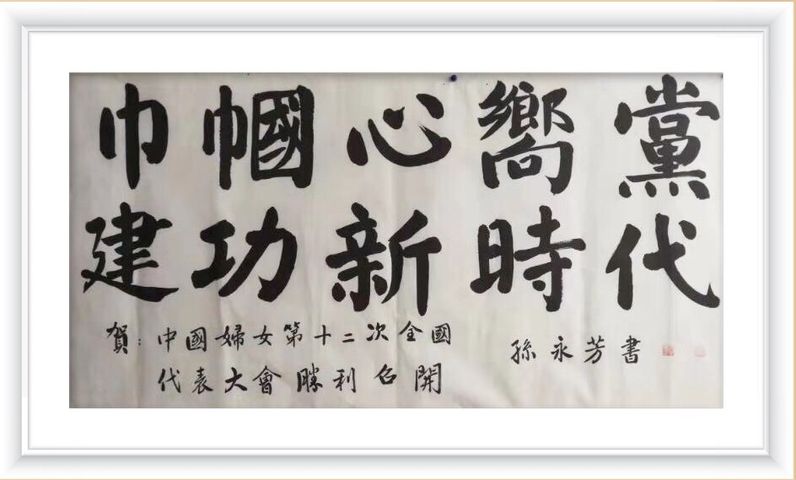 巾幗心嚮黨
建功新時代
賀：中國婦女第十二次全國
代表大會勝利召開
孫永芳書